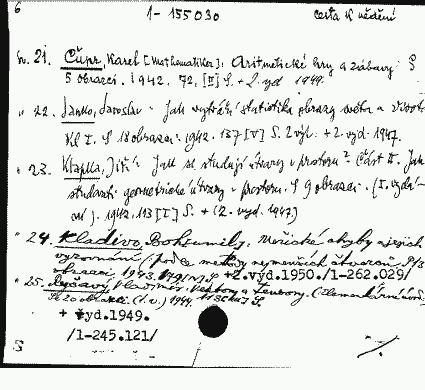 6 1-155030 cesta k vědění
sv. 21. Čupr, Karel [Mathematiker]: Aritmetické hry a zábavy. S
5 obrazci. 1942. 72, [II] S. + 2. vyd. 1949.
" 22. Janko, Jaroslav: Jak vytváří statistika obrazy světa a života.
I. S 18 obrazci. 1942. 137 [V] S. 2. výt. + 2. vyd. 1947.
" 23. Klapka, Jiří: Jak se studují útvary v prostoru? Část II. Jak
studovati geometrické útvary v prostoru. S 9 obrazci. (I. vydá-
ní). 1942. 113 [I] S. + (2. vyd. 1947)
" 24. Kladivo, Bohumil: Měřické chyby a jejich
vyrovnání (podle metody nejmenších čtverců). S
obrazci, 1943. S. +2.vyd.1950./1-262.029/
" 25. Ryšavý, Vladimír: Vektory a tensory. (Elementární úvod)
S 20 obrazci. (1. v.) 1944. S.
+ vyd.1949.
/1-245.121/
S